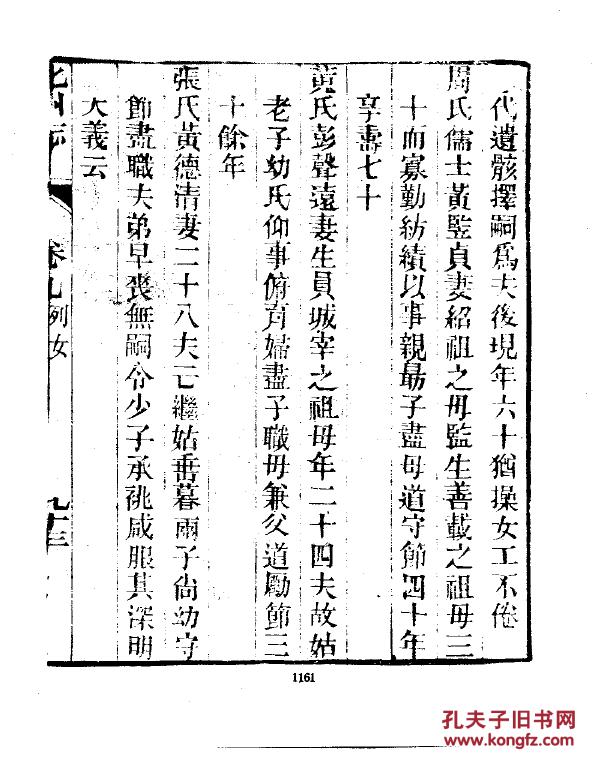 代遺骸擇嗣爲夫後現年六十猶操女工不倦
周氏儒士黃監貞妻紹祖之母監生善載之祖母三
十而寡勤紡績以事親勗子盡母道守節四十年
享壽七十
黃氏彭聲遠妻生員城宰之祖母年二十四夫故姑
老子幼氏仰事俯育婦盡子職母兼父道勵節三
十餘年
張氏黃德清妻二十八夫亡繼姑垂暮兩子尙幼守
節盡職夫弟早喪無嗣令少子承祧咸服其深明
大義云
州志
卷九列女
九十三
1161
孔夫子旧书网
www.kongfz.com